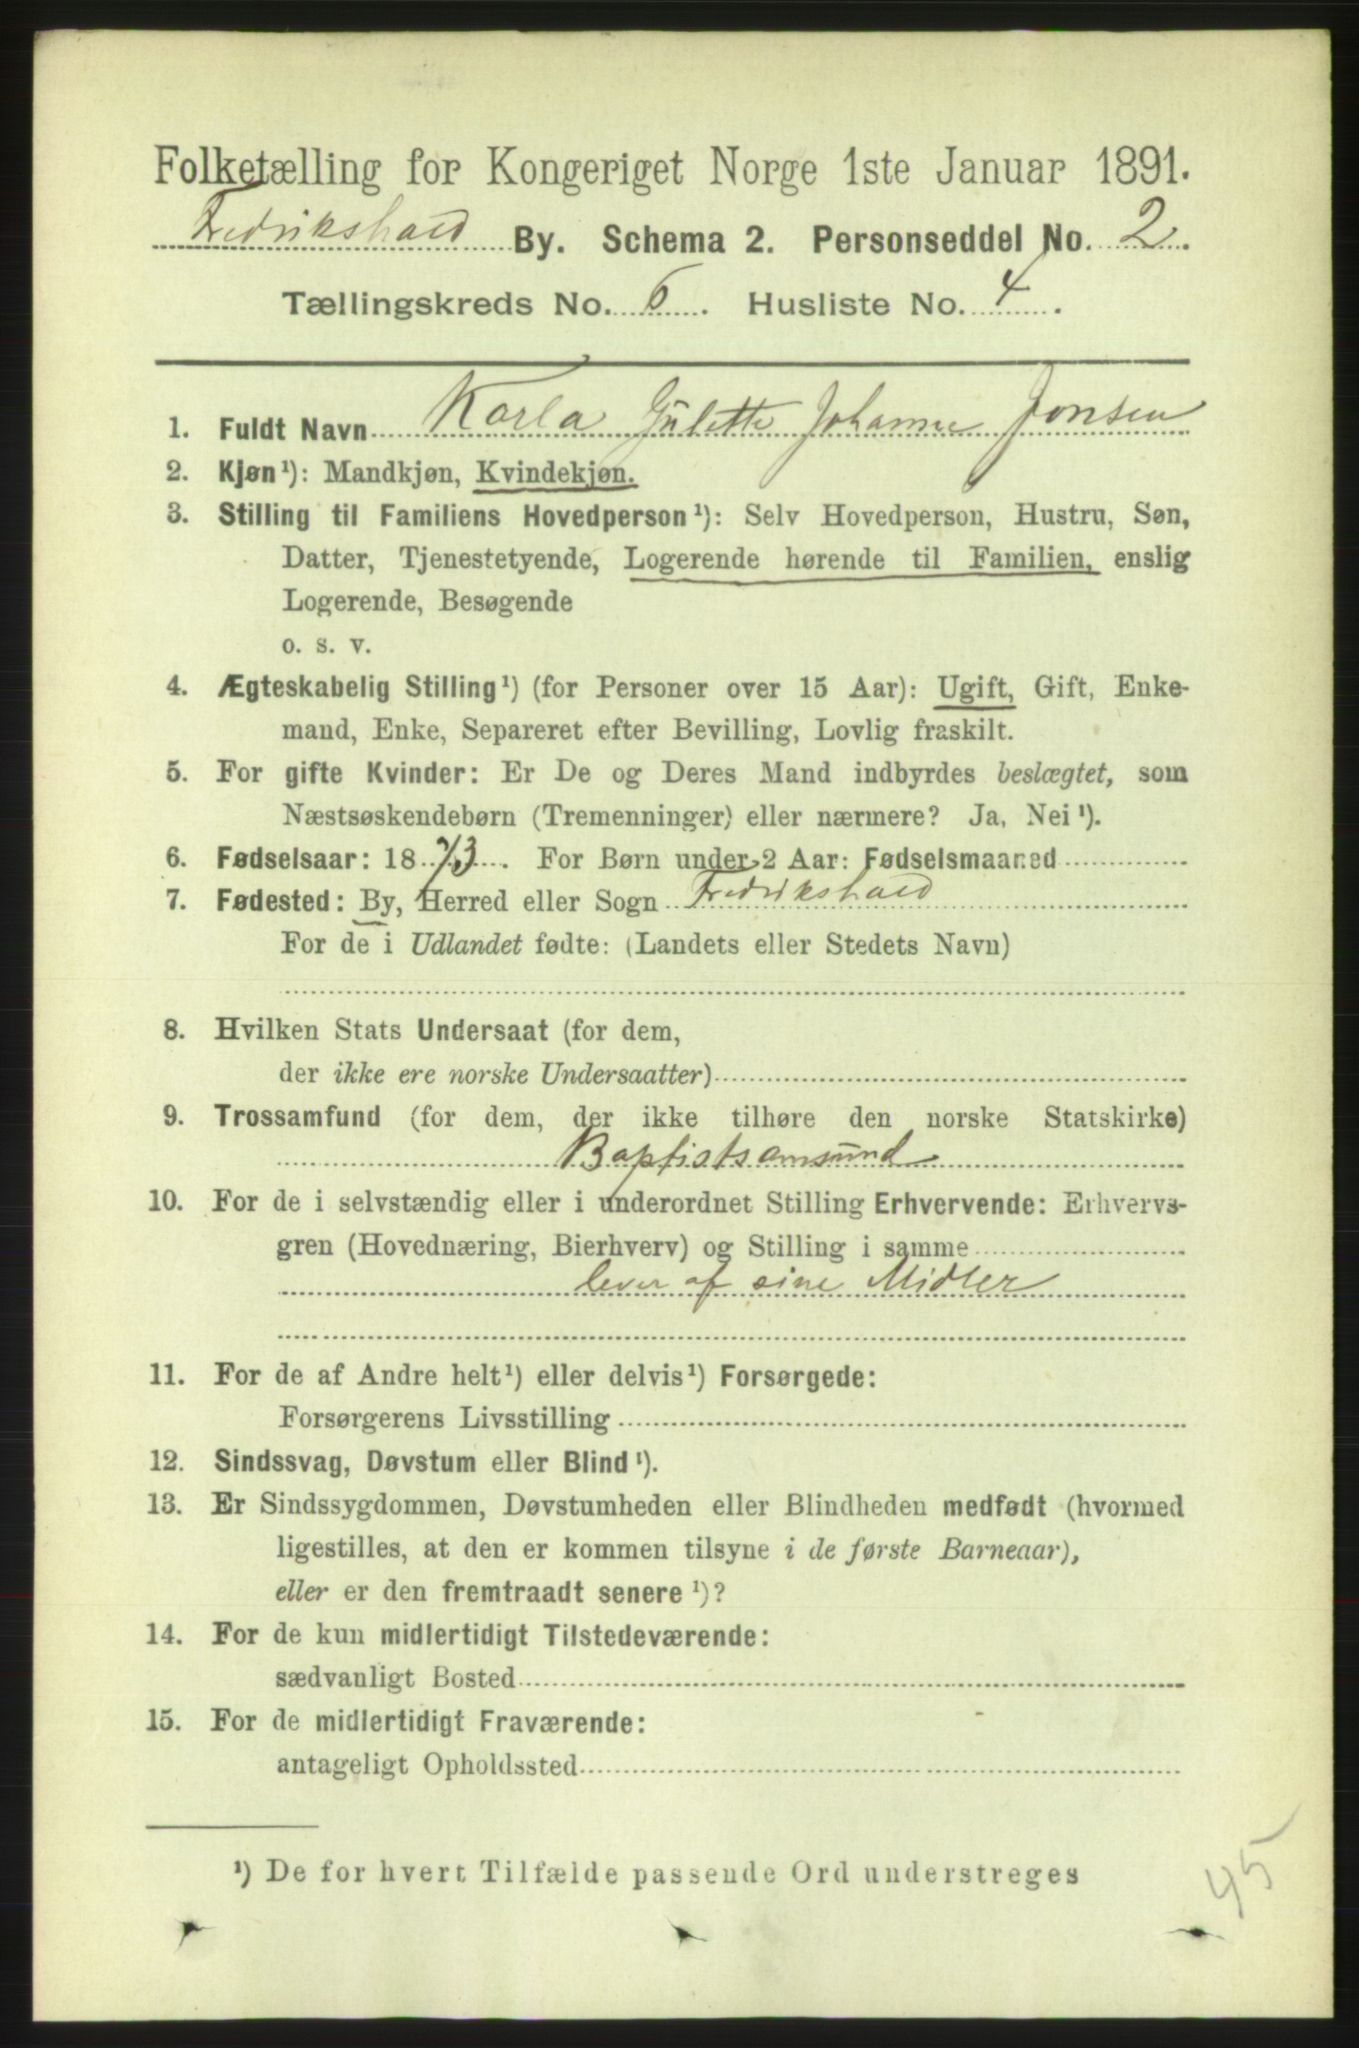 Folketælling for Kongeriget Norge 1ste Januar 1891.
Fredrikshald By. Schema 2. Personseddel No. 2.
Tællingskreds No. 6. Husliste No. 4.
1. Fuldt Navn Karla Julette Johanne Jonsen
2. Kjøn¹): Mandkjøn, Kvindekjøn.
3. Stilling til Familiens Hovedperson¹): Selv Hovedperson, Hustru, Søn,
Datter, Tjenestetyende, Logerende hørende til Familien, enslig
Logerende, Besøgende
o. s. v.
4. Ægteskabelig Stilling¹) (for Personer over 15 Aar): Ugift, Gift, Enke-
mand, Enke, Separeret efter Bevilling, Lovlig fraskilt.
5. For gifte Kvinder: Er De og Deres Mand indbyrdes beslægtet, som
Næstsøskendebørn (Tremenninger) eller nærmere? Ja, Nei¹).
6. Fødselsaar: 1873. For Børn under 2 Aar: Fødselsmaaned
7. Fødested: By, Herred eller Sogn Fredrikshald
For de i Udlandet fødte: (Landets eller Stedets Navn)
8. Hvilken Stats Undersaat (for dem,
der ikke ere norske Undersaatter)
9. Trossamfund (for dem, der ikke tilhøre den norske Statskirke)
Baptistsamsund
10. For de i selvstændig eller i underordnet Stilling Erhvervende: Erhvervs-
gren (Hovednæring, Bierhverv) og Stilling i samme
lever af sine Midler
11. For de af Andre helt¹) eller delvis¹) Forsørgede:
Forsørgerens Livsstilling
12. Sindssvag, Døvstum eller Blind¹).
13. Er Sindssygdommen, Døvstumheden eller Blindheden medfødt (hvormed
ligestilles, at den er kommen tilsyne i de første Barneaar),
eller er den fremtraadt senere¹)?
14. For de kun midlertidigt Tilstedeværende:
sædvanligt Bosted
15. For de midlertidigt Fraværende:
antageligt Opholdssted
¹) De for hvert Tilfælde passende Ord understreges
45